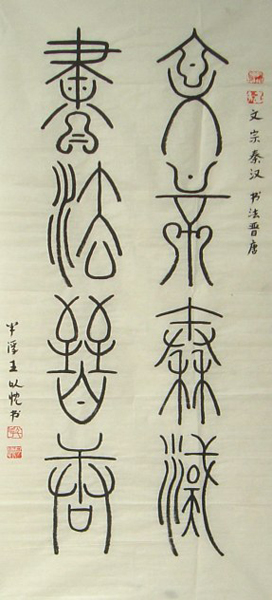 文宗秦汉 书法晋唐
文宗秦漢
書法晉唐
王以书